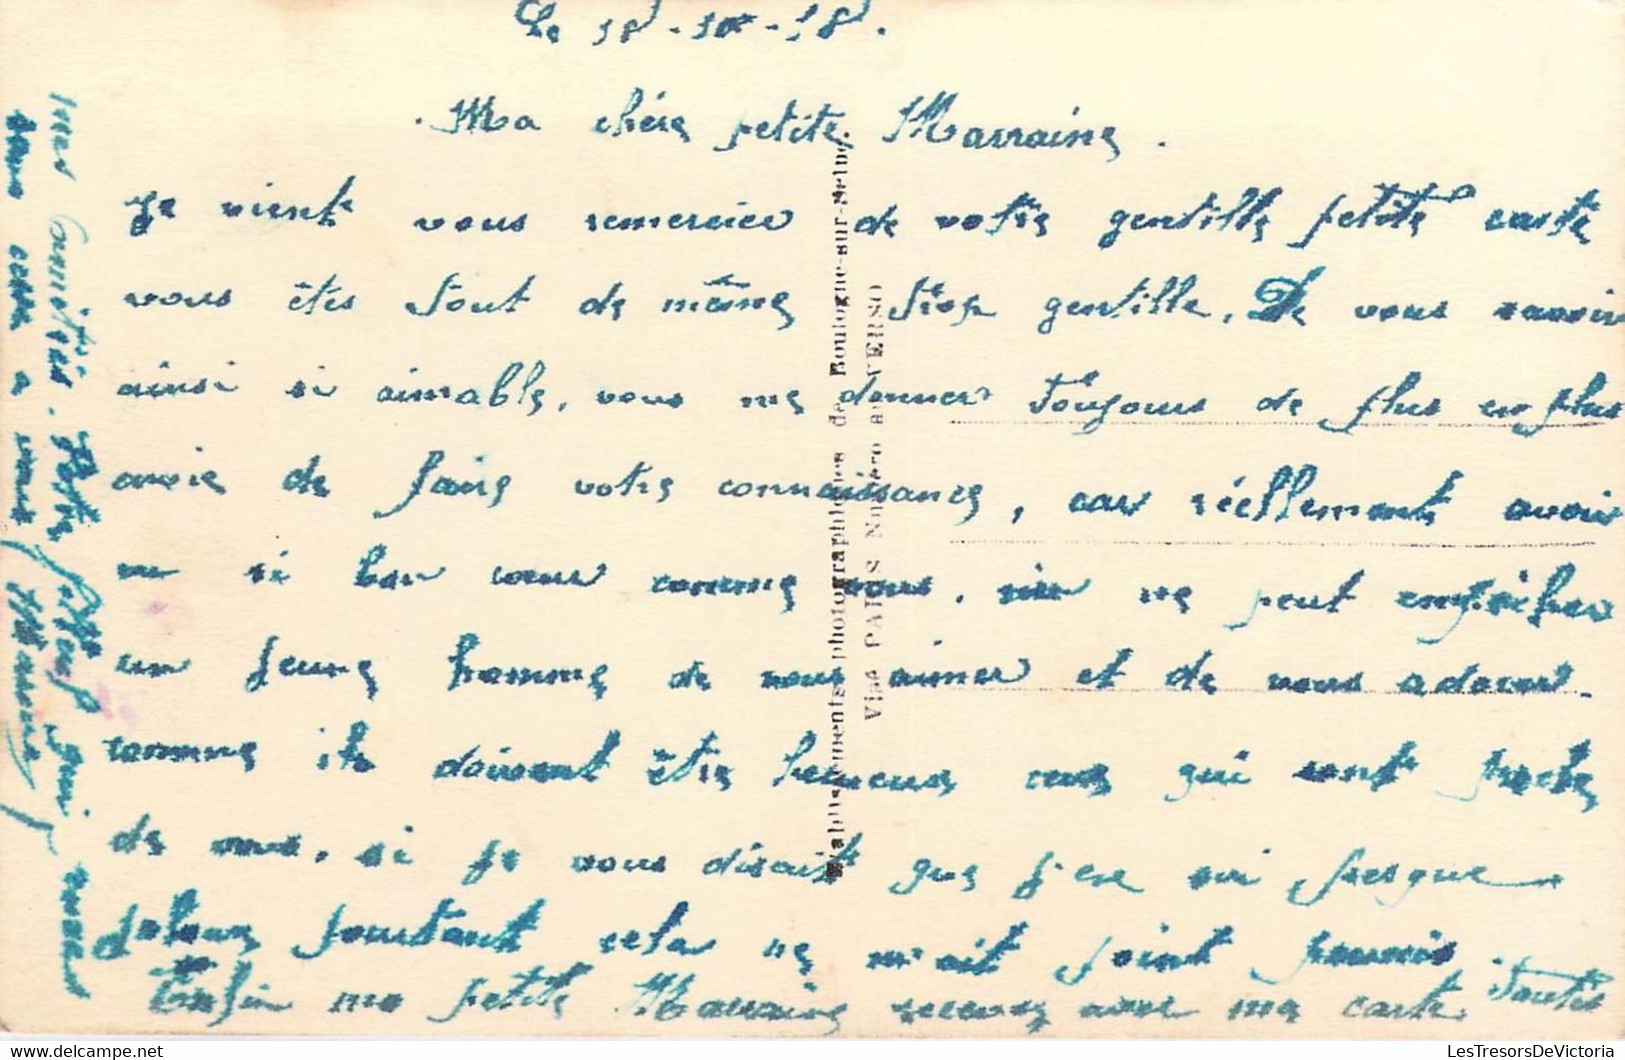 Le 18-10-18.
Ma chère petite Marraine.
Je vient vous remercier de votre gentille petite carte
vous êtes tout de même trop gentille. De vous savoir
ainsi si aimable, vous me donner toujours de plus en plus
envie de faire votre connaissance, car réellement avoir
un si bon coeur comme vous, rien ne peut empêcher
un jeune homme de vous aimer et de vous adorer.
comme ils doivent être heureux ceux qui sont proche
de vous, si je vous disait que j'en sui presque
jaloux pourtant cela ne m'ait point permis.
Enfin ma petite Marraine recevez avec ma carte Toutes
mes amitiés. Votre filleul qui pense
sans cesse a vous
Etablissements photographiques de Boulogne-sur-Seine
Visé PARIS Numéro au VERSO
LesTresorsDeVictoria